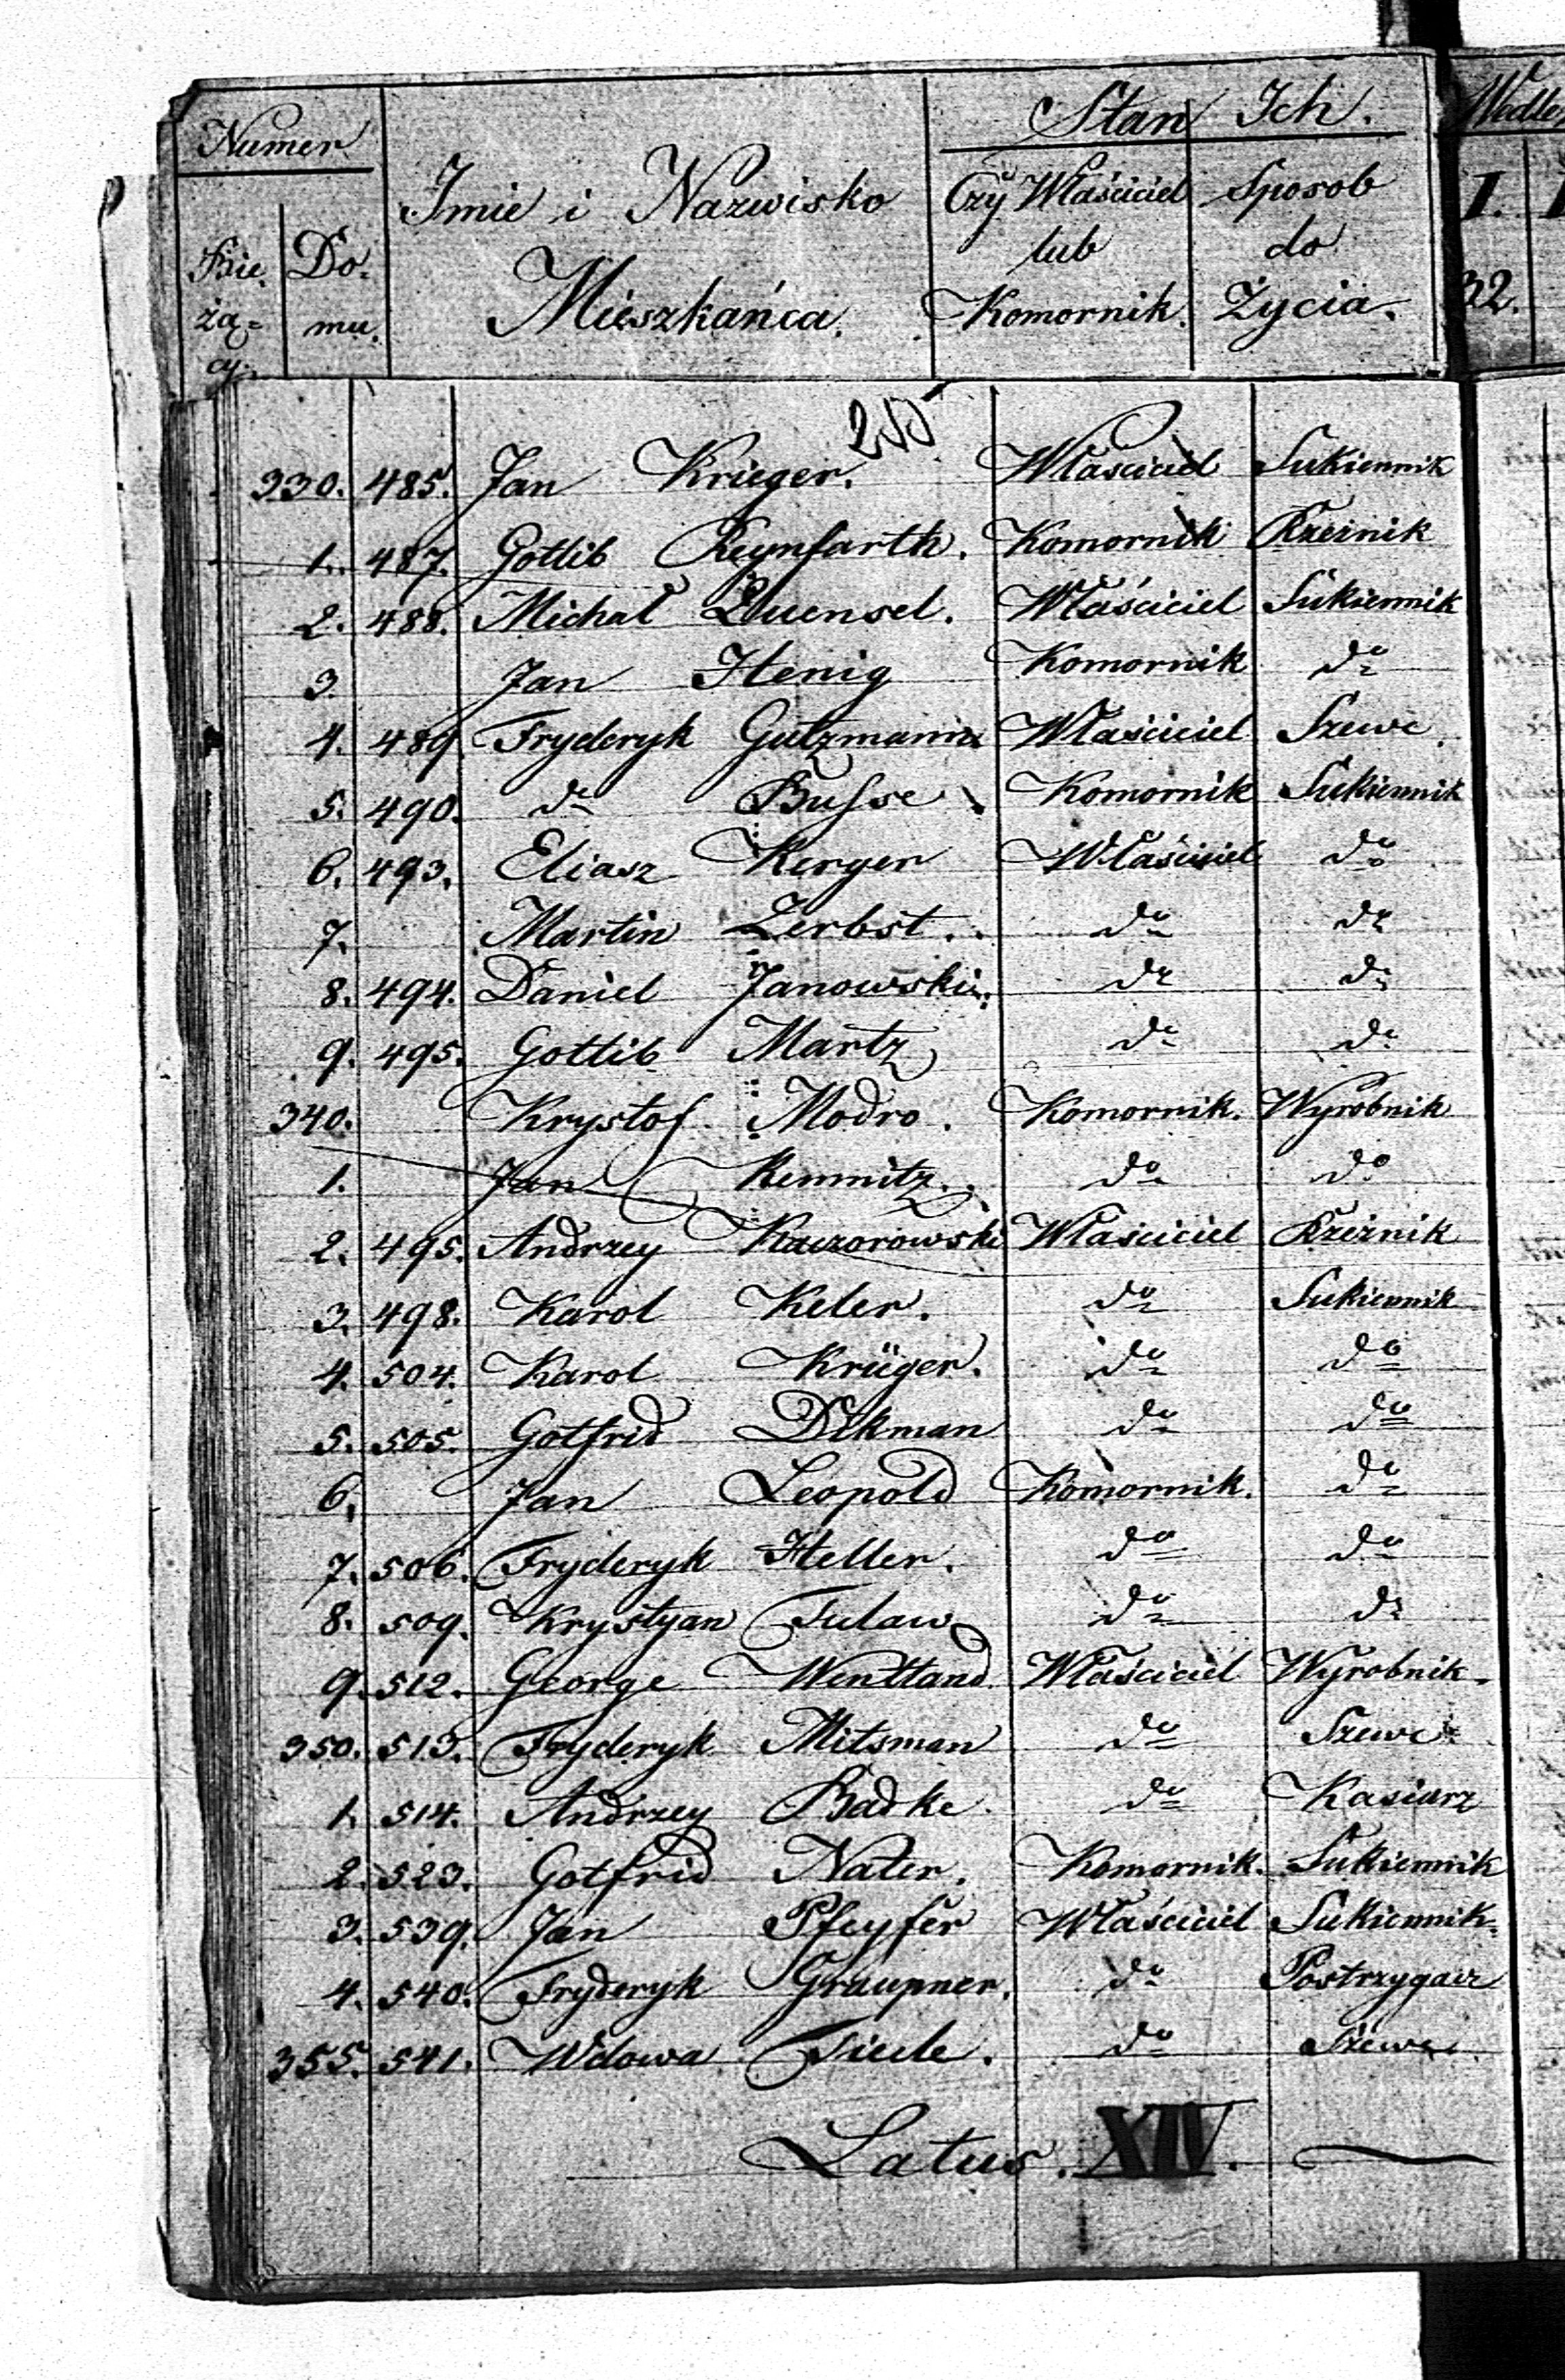 Numer
Stan Ich.
Wedle
Imie i Nazwisko
Mieszkańca.
Czÿ Właściciel
lub
Komornik.
Sposob
do
Życia.
Bie
żą=
cy.
Do=
mu.
I.
32.
330. 485. Jan Krieger. Właściciel Sukiennik
1. 487. Gottlib Reynfarth. Komornik Rzeźnik
2. 488. Michał Quensel. Właściciel Sukiennik
3. Jan Henig Komornik do
4. 489 Fryderyk Gutzmann Właściciel Szewc
5. 490. do Busse Komornik Sukiennik
6. 493. Eliasz Kerger Właściciel do
7. Martin Zerbst. do do
8. 494. Daniel Janowski. do do
9. 495. Gottlib Martz do do
340. Krystof Modro. Komornik. Wyrobnik
1. Jan Kemnitz. do do
2. 495. Andrzey Kaczorowski Właściciel Rzeźnik
3. 498. Karol Keler. do Sukiennik
4. 504. Karol Krüger. do do
5. 505. Gotfrid Dikman do do
6. Jan Leopold Komornik. do
7. 506. Fryderyk Heller. do do
8. 509. Krystyan Tulaw do do
9. 512. George Wentland Właściciel Wyrobnik.
350. 513. Fryderyk Mitsman do Szewc
1. 514. Andrzey Badke do Kasiarz
2. 523. Gotfrid Nater. Komornik. Sukiennik
3. 539. Jan Pfeyfer Właściciel Sukiennik.
4. 540. Fryderyk Graupner. do Postrzygacz
355. 541. Wdowa Tiede. do Szewc
Latus. XIV.